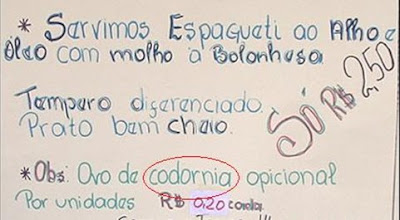 * Servimos Espagueti ao Alho e
óleo com molho à Bolonhesa
Só R$ 2,50
Tempero diferenciado.
Prato bem cheio.
* Obs: Ovo de codornia opicional
Por unidades R$ 0,20 cada.